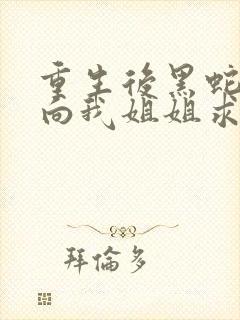 重生後黑蛇
向我姐姐求
拜倫多